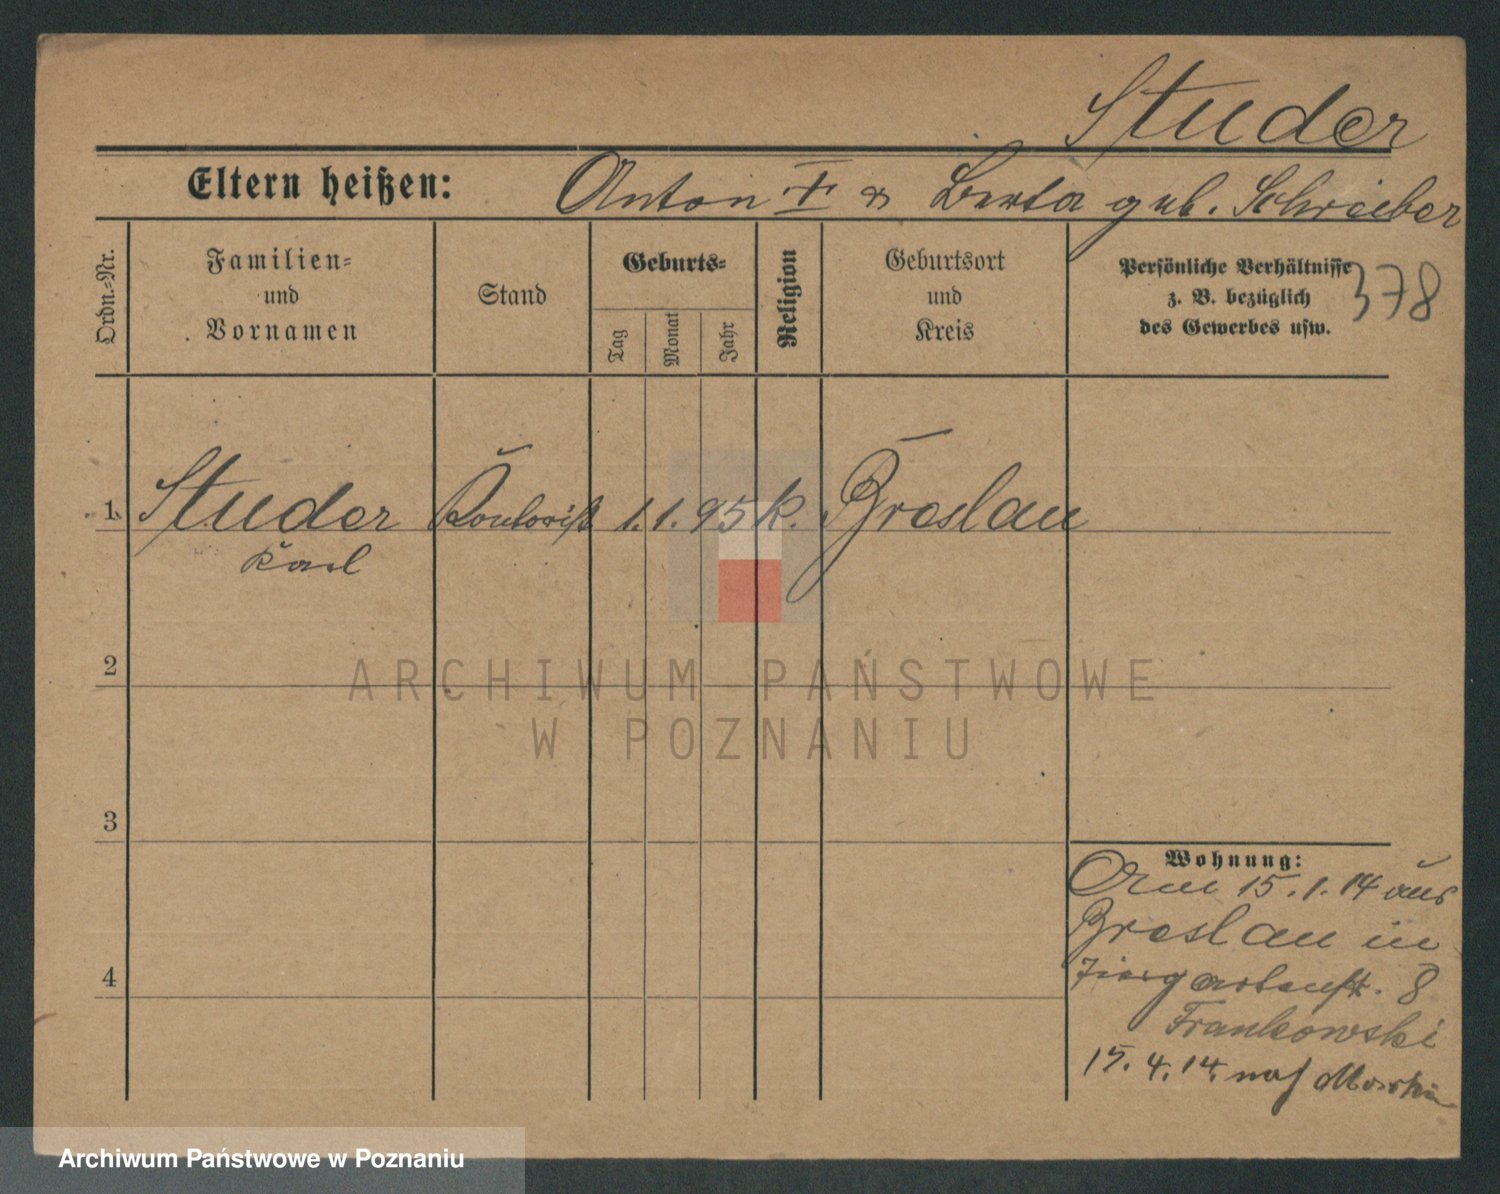 Studer
Eltern heißen: Anton † & Berta geb. Schrieber
Ordn.=Nr.
Familien=
und
Vornamen
Stand
Geburts=
Tag
Monat
Jahr
Religion
Geburtsort
und
Kreis
Persönliche Verhältnisse
z. B. bezüglich
des Gewerbes usw.
378
1 Studer Kontorist 1. 1. 95 k. Breslau
Karl
2
ARCHIWUM PAŃSTWOWE
W POZNANIU
3
Wohnung:
Am 15.1.14 aus
Breslau in
Tiergartenstr. 8
4
Frankowski
15.4.14. nach
Archiwum Państwowe w Poznaniu